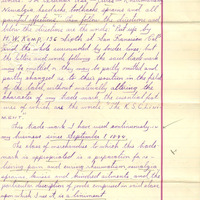 Neuralgia headache toothache sprains and all
painful affections" then follow the directions and
below the directions are the words "Put up by
H. W. Kemp, 126 South st San Francisco Cal"
and the whole surrounded by border lines, but
the letters and words following the said trade mark
may be omitted or they may be partly omitted and
partly changed as to their position in the field
of the label without materially altering the
character of my trade mark the essential feat-
ures of which are the words "The R. & C. Lini-
ment."
This trade mark I have used continuously in
my business since September 1, 1890.
The class of merchandise to which this trade
mark is appropriated is a preparation for re-
lieving pain and curing rheumatism neuralgia
sprains bruises and kindred ailments, and the
particular description of goods comprised in said class
upon which I use it is a liniment